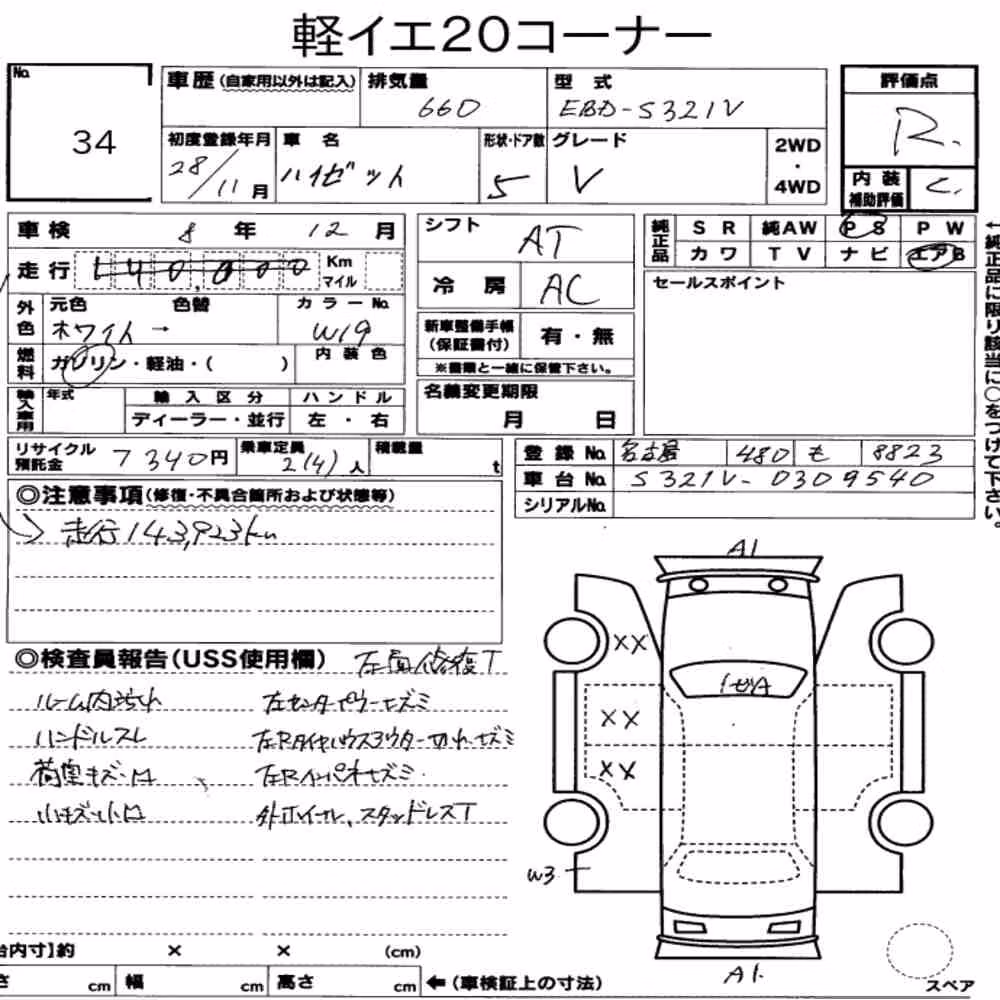 軽イエ20コーナー
No. 34
車歴(自家用以外は記入) 排気量 660 型式 EBD-S321V 評価点 R.
初度登録年月 28/11月 車名 ハイゼット 形状・ドア数 5 グレード V 2WD・4WD
内装補助評価 C.
車検 8年 12月 シフト AT 純正品 SR 純AW PS PW
カワ TV ナビ エアB
走行 140,000 Km マイル 冷房 AC セールスポイント
外色 元色 ホワイト → 色替 カラーNo. W19
新車整備手帳(保証書付) 有・無
※書類と一緒に保管下さい。
燃料 ガソリン・軽油・( ) 内装色
輸入車用 年式 輸入区分 ハンドル
ディーラー・並行 左・右
名義変更期限 月 日
リサイクル預託金 7340円 乗車定員 2(4)人 積載量 t
登録No. 名古屋 480 も 8823
車台No. S321V-0309540
シリアルNo.
←純正品に限り該当に○をつけて下さい。
◎注意事項(修復・不具合箇所および状態等)
走行143,923km
◎検査員報告(USS使用欄) 左面修復T
ルーム内汚れ 左センターピラーヒズミ
ハンドルスレ 左Rタイヤハウスアウター切れ、ヒズミ
荷室キズ・凹 左Rインパネヒズミ
小キズ小凹 外ホイール、スタッドレスT
A1
XX
XX
XX
W3
A1.
台内寸】約 × × (cm)
さ cm 幅 cm 高さ cm ←(車検証上の寸法)
スペア